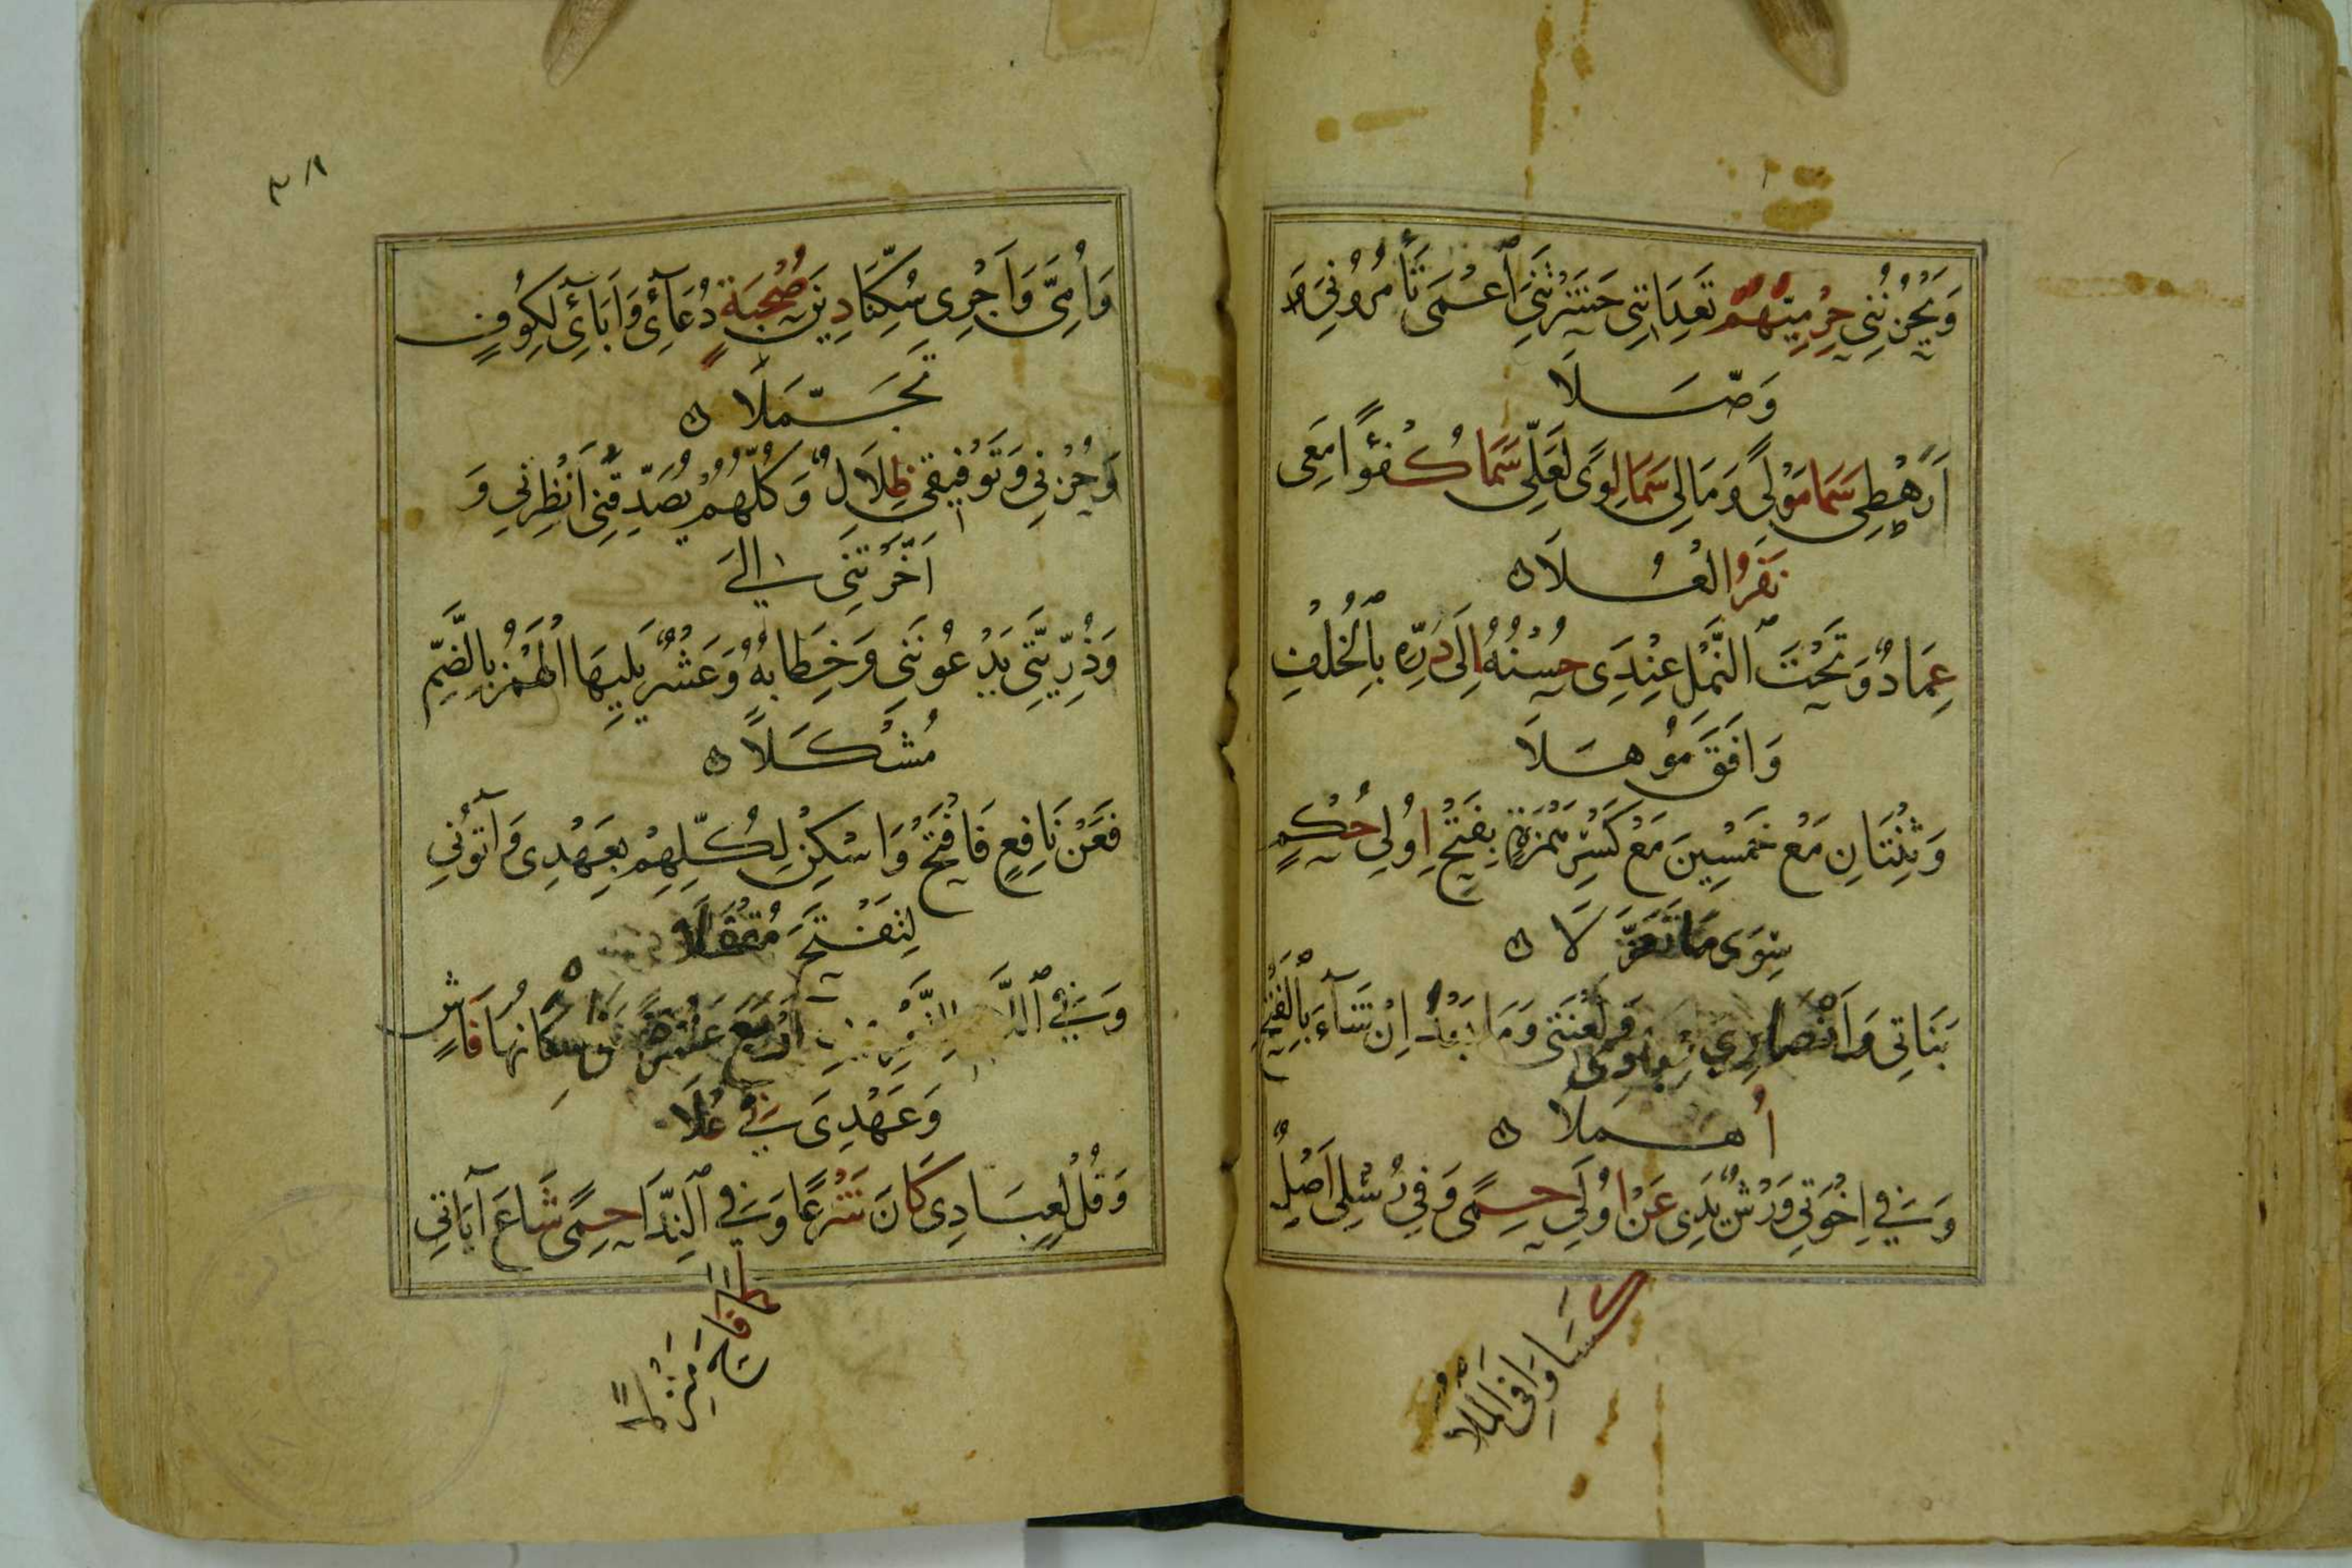 وَيَحْزُنُنِي حِرْمِيُّهُمْ تَعِدَانِنِي حَشَرْتَنِي ٱعْمَى تَأْمُرُونِي وَ
وَصَّلَا
أَرَهْطِي سَمَا مَوْلًى وَمَالِي سَمَا لِوًى لَعَلِّي سَمَا كُفْؤًا مَعِي
نَفَرُ الْعُلَا
عِمَادٌ وَتَحْتَ ٱلنَّمْلِ عِنْدِي حُسْنُهُ إِلَى دُرِّهِ بِٱلْخُلْفِ
وَافَقَ مُوهَلَا
وَثِنْتَانِ مَعْ خَمْسِينَ مَعْ كَسْرِ هَمْزَةٍ بِفَتْحٍ اُولِي حُكْمٍ
سِوَى مَا تَعَزَّلَا
بَنَاتِي وَأَنْصَارِي عِبَادِي وَلَعْنَتِي وَمَا بَعْدَهُ اِنْ شَاءَ بِٱلْفَتْحِ
أُهْمِلَا
وَفِي اِخْوَتِي وَرْشٌ يَدِي عَنْ اُولِي حِمًى وَفِي رُسُلِي اَصْلٌ
كَسَا وَافِيَ الْمُلَا
٣٨
وَاُمِّي وَاَجْرِي سُكِّنَا دِينُ صُحْبَةٍ دُعَآئِي وَاٰبَآئِي لِكُوفٍ
تَجَمَّلَا
وَحُزْنِي وَتَوْفِيقِي ظِلَالٌ وَكُلُّهُمْ يُصَدِّقْنِي اَنْظِرْنِي وَ
اَخَّرْتَنِي اِلَى
وَذُرِّيَّتِي يَدْعُونَنِي وَخِطَابُهُ وَعَشْرٌ يَلِيهَا الْهَمْزُ بِالضَّمِّ
مُشْكَلَا
فَعَنْ نَافِعٍ فَافْتَحْ وَاَسْكِنْ لِكُلِّهِمْ بِعَهْدِي وَآتُونِي
لِتَفْتَحَ مُقْفَلَا
وَفِي ٱللَّامِ لِلتَّعْرِيفِ اَرْبَعُ عَشْرَةٍ فَاِسْكَانُهَا فَاشٍ
وَعَهْدِي فِي عُلَا
وَقُلْ لِعِبَادِي كَانَ شَرْعًا وَفِي ٱلنِّدَا حِمًى شَاعَ آيَاتِي
كَمَا فَاحَ مَنْزِلَا